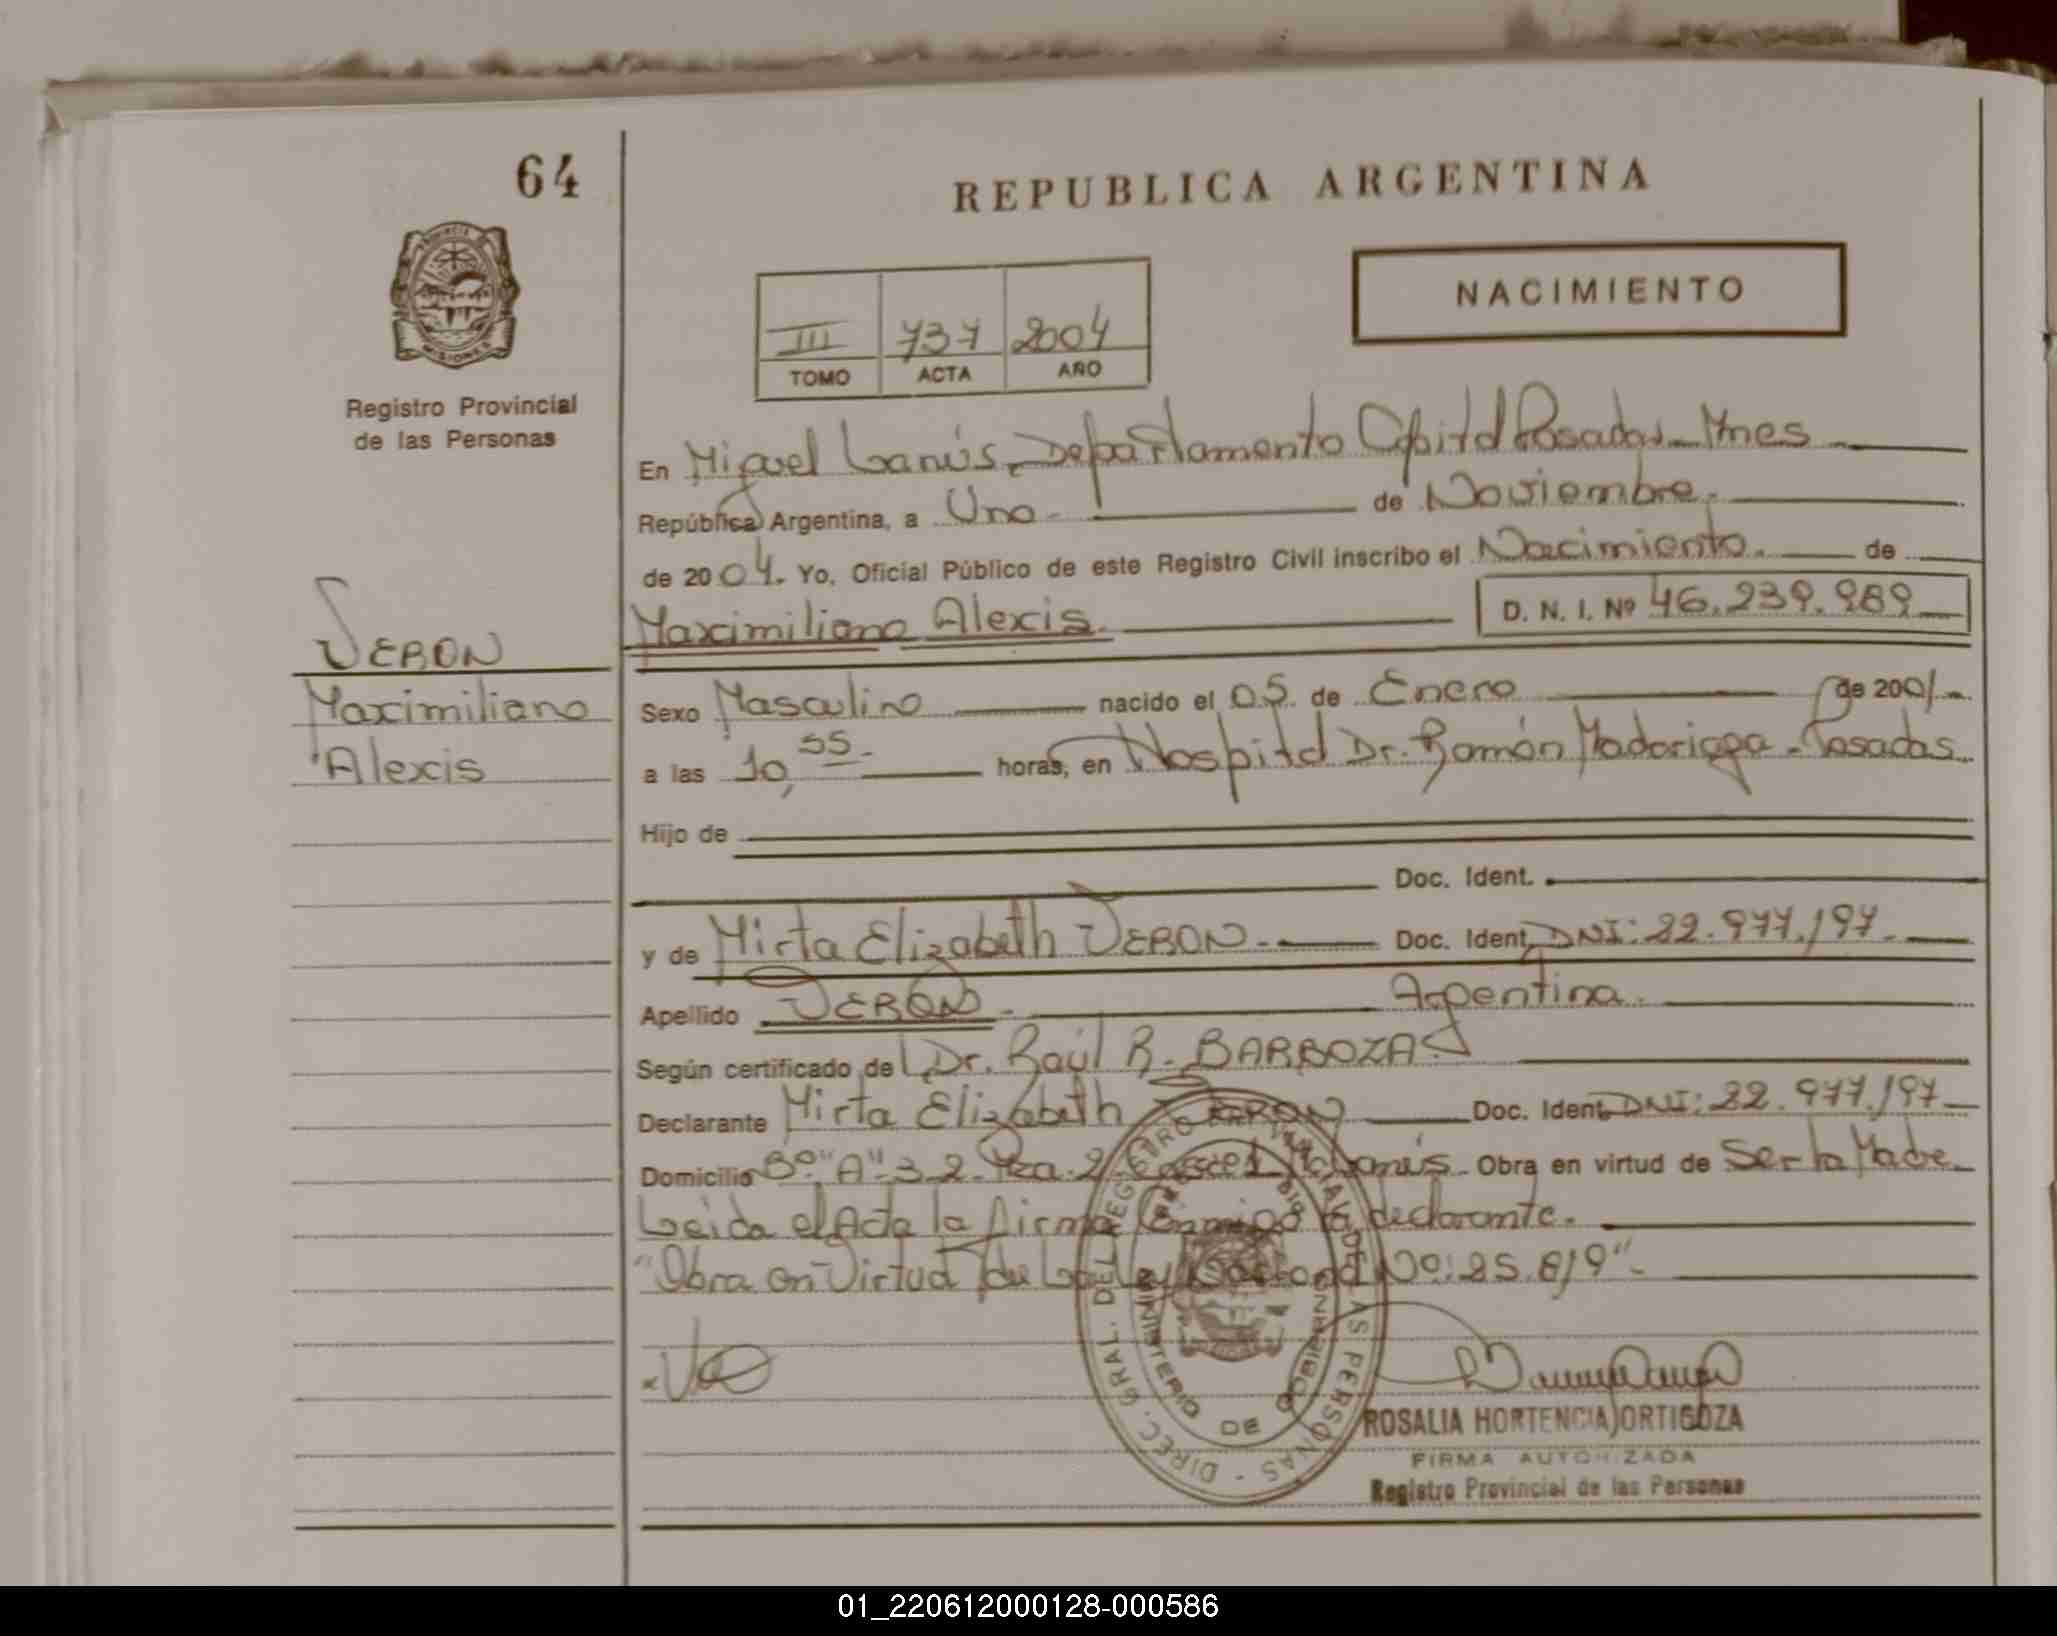 64
REPUBLICA ARGENTINA
PROVINCIA DE MISIONES
Registro Provincial
de las Personas
NACIMIENTO
III 737 2004
TOMO ACTA AÑO
En Miguel Lanús, Departamento Capital Posadas Mnes
República Argentina, a Uno de Noviembre.
de 2004. Yo, Oficial Público de este Registro Civil inscribo el Nacimiento. de
Maximiliano Alexis. D. N. I. Nº 46.239.989
VERON
Maximiliano
Alexis
Sexo Masculino nacido el 05 de Enero de 2001
a las 10,55 horas, en Hospital Dr. Ramón Madariaga - Posadas
Hijo de
Doc. Ident.
y de Mirta Elizabeth VERON. Doc. Ident. DNI: 22.977.197
Apellido VERON Argentina.
Según certificado de Dr. Raúl R. BARBOZA.
Declarante Mirta Elizabeth VERON Doc. Ident. DNI: 22.977.197
Domicilio Bº "A" 3-2 Mza. 2 Lanús Obra en virtud de Ser la Madre
Leida el Acta la firma Conmigo la declarante.
"Obra en Virtud de la Ley Nacional Nº: 25.819".
DIREC. GRAL. DEL REGISTRO PROVINCIAL DE LAS PERSONAS
MINISTERIO DE GOBIERNO
ROSALIA HORTENCIA ORTIGOZA
FIRMA AUTORIZADA
Registro Provincial de las Personas
01_220612000128-000586